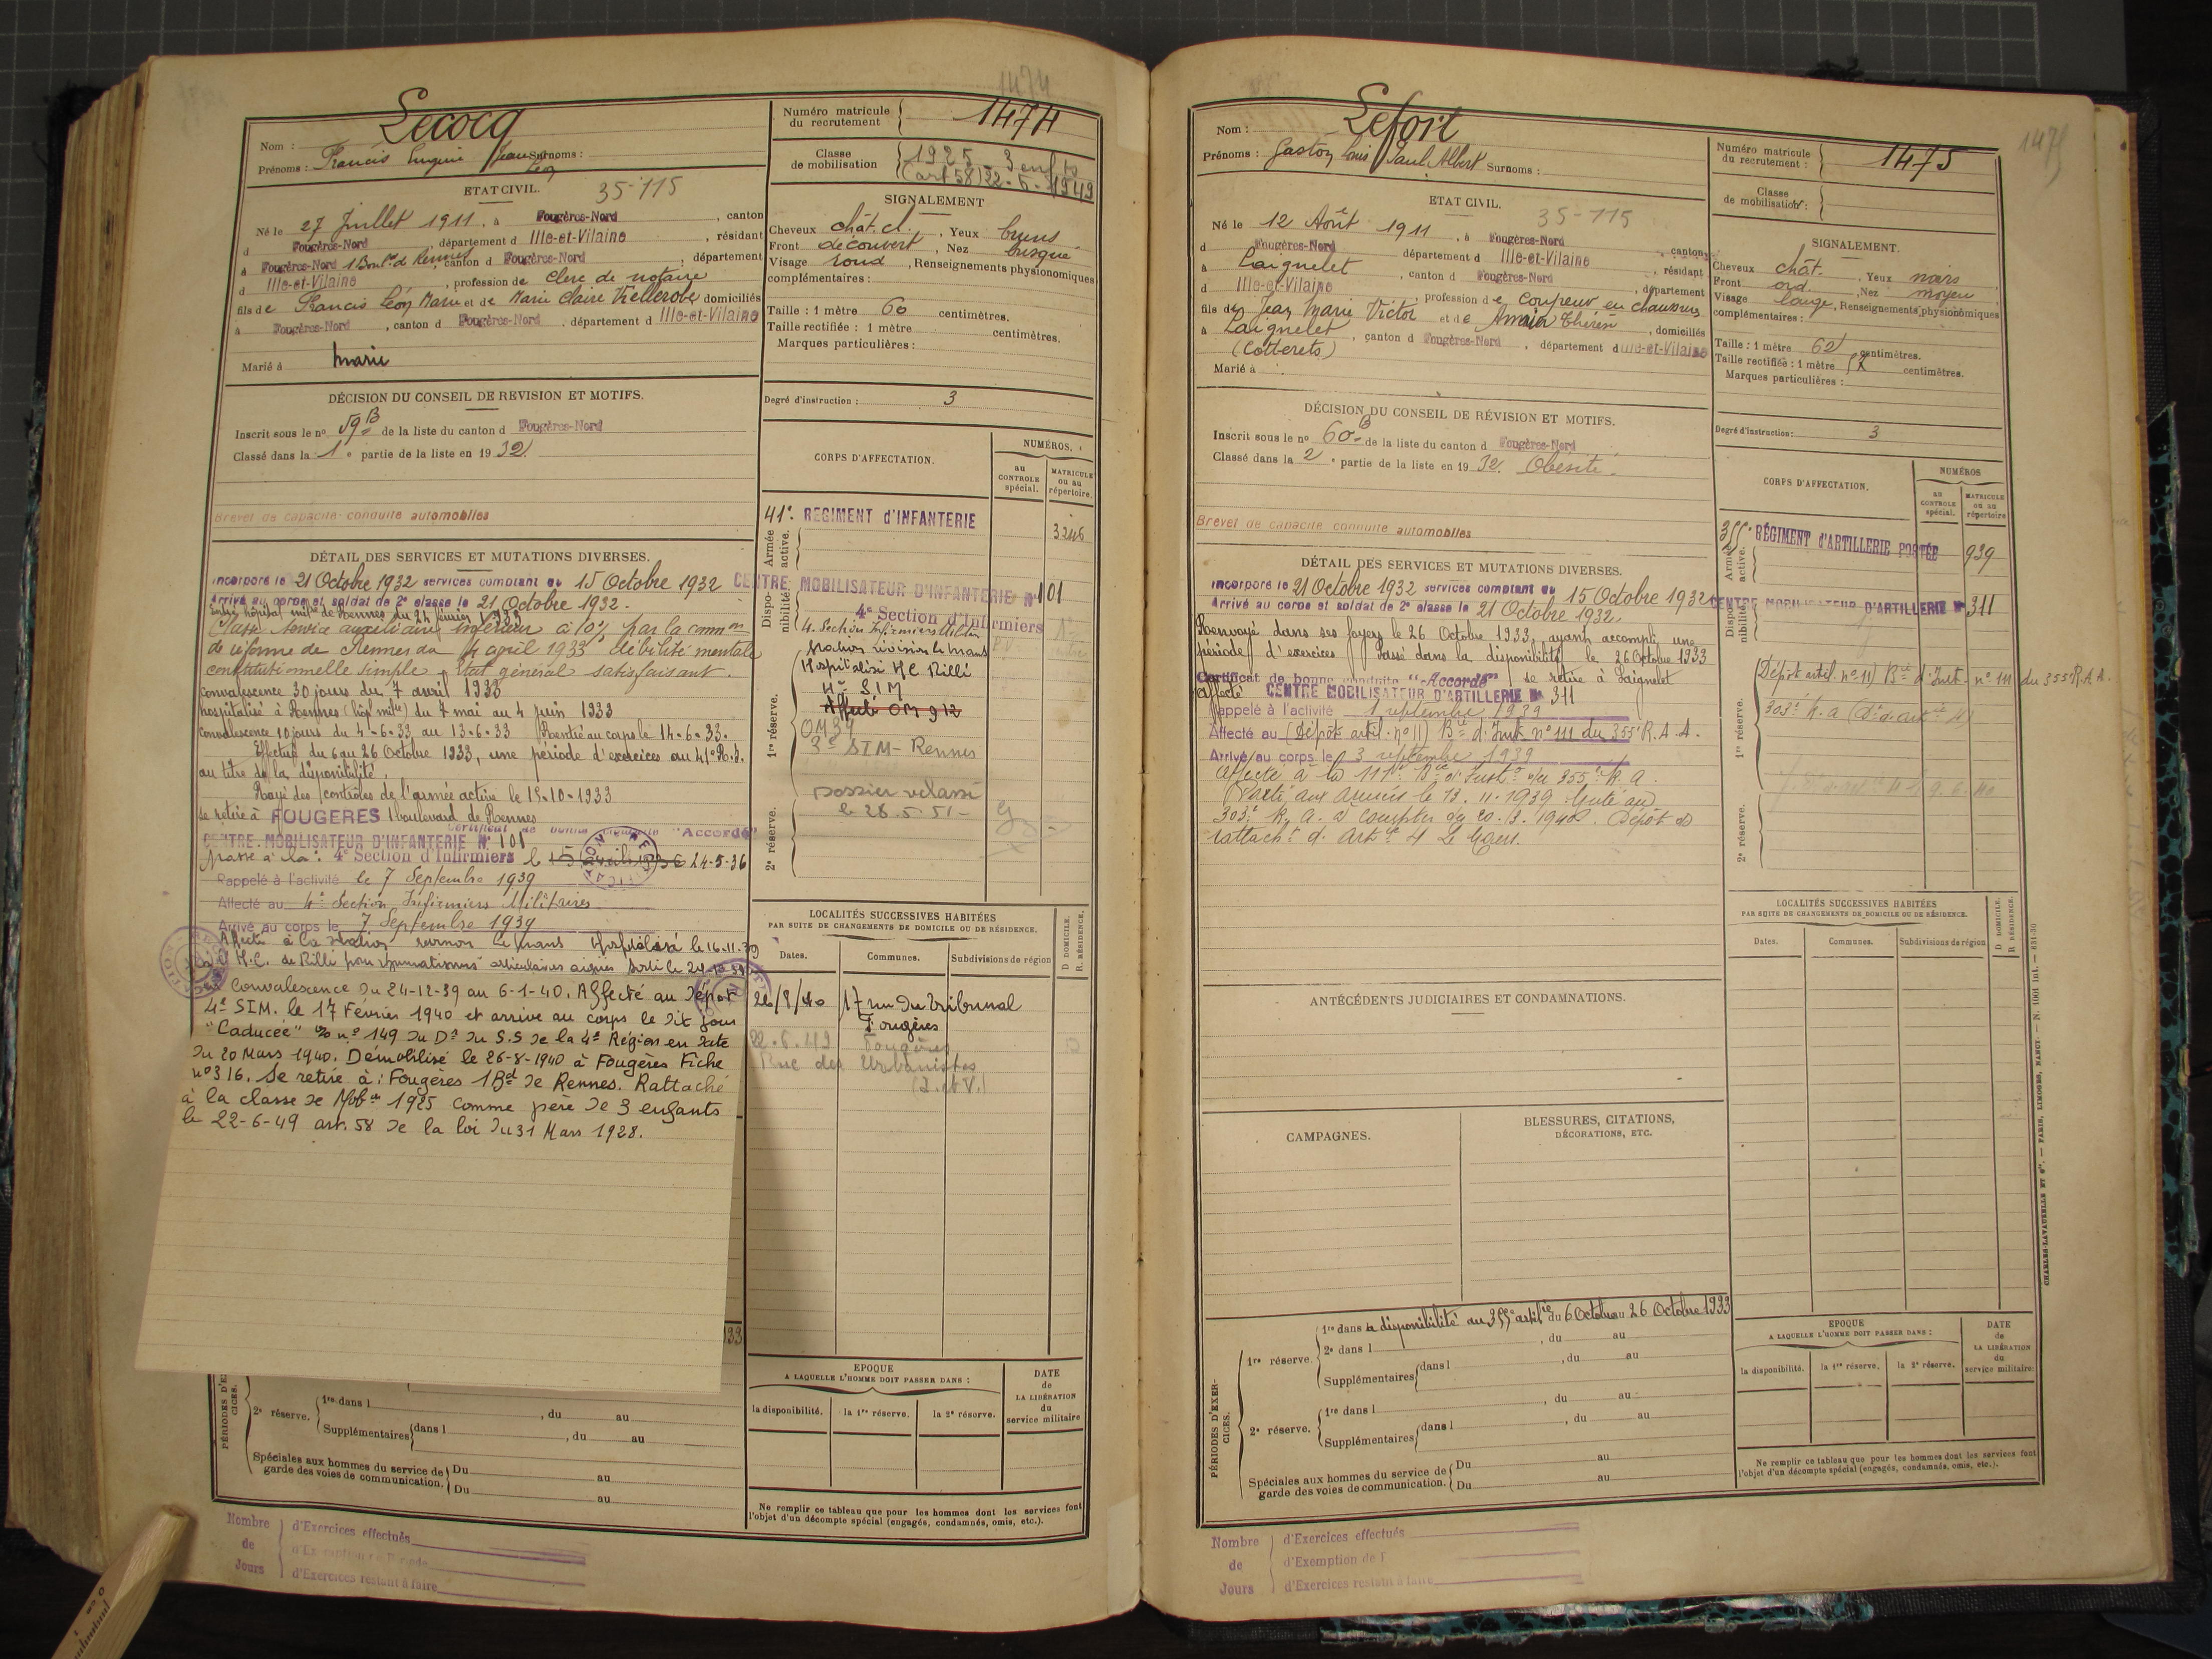 1474
Nom : Lecocq
Prénoms : Francis Eugène Jean Léon Surnoms :
Numéro matricule du recrutement 1474
Classe de mobilisation 1925 3 enfts
(art 58) 22-6-1949
ETAT CIVIL. 35-115
Né le 27 Juillet 1911. à Fougères-Nord, canton
d Fougères-Nord, département d Ille-et-Vilaine, résidant
à Fougères-Nord 1 Boul.d de Rennes, canton d Fougères-Nord, département
d Ille-et-Vilaine, profession de Clerc de notaire
fils de Francis Léon Marie et de Marie Claire domiciliés
à Fougères-Nord, canton d Fougères-Nord, département d Ille-et-Vilaine
Marié à Marié
SIGNALEMENT
Cheveux chât. cl., Yeux bruns
Front découvert, Nez busqué
Visage rond, Renseignements physionomiques
complémentaires :
Taille : 1 mètre 60 centimètres.
Taille rectifiée : 1 mètre centimètres.
Marques particulières :
DÉCISION DU CONSEIL DE REVISION ET MOTIFS.
Inscrit sous le no 59 B de la liste du canton d Fougères-Nord
Classé dans la 1e partie de la liste en 1932.
Degré d'instruction : 3
Brevet de capacité conduite automobiles
CORPS D'AFFECTATION.
NUMÉROS.
au CONTROLE spécial.
MATRICULE ou au répertoire.
Armée active.
41e. REGIMENT d'INFANTERIE 3246
Disponibilité.
CENTRE MOBILISATEUR D'INFANTERIE N° 101
4e Section d'Infirmiers
4. Section Infirmiers Militaires
Hospitalisé HC Rilli
4e SIM
Affecté OM 912
1re réserve.
OM 39
3e SIM - Rennes
Dossier reclassé
le 28.5.51-
2e réserve.
DÉTAIL DES SERVICES ET MUTATIONS DIVERSES.
Incorporé le 21 Octobre 1932 services comptant du 15 Octobre 1932
Arrivé au corps et soldat de 2e classe le 21 Octobre 1932.
Entré hôpital mil.re de Rennes du 24 février 1933
Classé service auxiliaire inférieur à 10% par la comm.on
de réforme de Rennes du 4 april 1933 débilité mentale
constitutionnelle simple. Etat général satisfaisant.
Convalescence 30 jours du 7 avril 1933
hospitalisé à Rennes (hôpl milre) du 7 mai au 4 juin 1933
Convalescence 10 jours du 4-6-33 au 13-6-33 Rentré au corps le 14-6-33.
Effectué du 6 au 26 Octobre 1933, une période d'exercices au 41e R.I.
au titre de la disponibilité.
Rayé des contrôles de l'armée active le 15-10-1933
Se retire à FOUGERES 1 boulevard de Rennes
Certificat de bonne conduite "Accordé"
CENTRE MOBILISATEUR D'INFANTERIE N° 101
passé à la : 4e Section d'Infirmiers le 15 avril 1936 24-5-36
Rappelé à l'activité le 7 Septembre 1939
Affecté au 4e Section Infirmiers Militaires
Arrivé au corps le 7 Septembre 1939
Hospitalisé le 16-11-39
à l'H.C. de Rilli pour rhumatismes articulaires aigues sorti le 24-12-39
Convalescence du 24-12-39 au 6-1-40. Affecté au Dépôt
4e SIM. le 17 Février 1940 et arrive au corps le dit jour
"Caducée" n° 149 du Dr du S.S de la 4e Région en date
du 20 Mars 1940. Démobilisé le 26-8-1940 à Fougères Fiche
n° 316. Se retire à : Fougères 1 Bd de Rennes. Rattaché
à la classe de Mobon 1925 comme père de 3 enfants
le 22-6-49 art. 58 de la loi du 31 Mars 1928.
LOCALITÉS SUCCESSIVES HABITÉES
PAR SUITE DE CHANGEMENTS DE DOMICILE OU DE RÉSIDENCE.
Dates. Communes. Subdivisions de région
D DOMICILE. R. RÉSIDENCE.
26/8/40 17 rue du Tribunal
Fougères
22.6.49 Fougères
Rue des Urbanistes
(I. et V.)
33
PÉRIODES D'EXERCICES.
2e réserve. 1re dans l , du au
Supplémentaires dans l , du au
Spéciales aux hommes du service de garde des voies de communication. Du au
Du au
EPOQUE
A LAQUELLE L'HOMME DOIT PASSER DANS :
la disponibilité. la 1re réserve. la 2e réserve.
DATE de LA LIBÉRATION du service militaire
Ne remplir ce tableau que pour les hommes dont les services font
l'objet d'un décompte spécial (engagés, condamnés, omis, etc.).
Nombre de Jours
d'Exercices effectués
d'Exemption de Période
d'Exercices restant à faire
1475
Nom : Lefort
Prénoms : Gaston Louis Paul Albert Surnoms :
Numéro matricule du recrutement : 1475
Classe de mobilisation :
ETAT CIVIL. 35-115
Né le 12 Août 1911, à Fougères-Nord
d Fougères-Nord, canton, département d Ille-et-Vilaine, résidant
à Laignelet, canton d Fougères-Nord, département
d Ille-et-Vilaine, profession de Coupeur en chaussures
fils de Jean Marie Victor et de Thérèse, domiciliés
à Laignelet, canton d Fougères-Nord, département d Ille-et-Vilaine
(Cotterets)
Marié à
SIGNALEMENT.
Cheveux chât., Yeux mars
Front ord., Nez moyen
Visage large, Renseignements physionomiques
complémentaires :
Taille : 1 mètre 62 centimètres.
Taille rectifiée : 1 mètre centimètres.
Marques particulières :
DÉCISION DU CONSEIL DE RÉVISION ET MOTIFS.
Inscrit sous le no 60 B de la liste du canton d Fougères-Nord
Classé dans la 2e partie de la liste en 1932. Obésité.
Degré d'instruction : 3
Brevet de capacité conduite automobiles
CORPS D'AFFECTATION.
NUMÉROS
au CONTROLE spécial.
MATRICULE ou au répertoire
Armée active.
355e RÉGIMENT d'ARTILLERIE PORTÉE 939
Disponibilité.
CENTRE MOBILISATEUR D'ARTILLERIE N° 311
1re réserve.
Dépôt artil. n° 11) Bie d'Inst. n° 111 du 355e R.A.A.
2e réserve.
DÉTAIL DES SERVICES ET MUTATIONS DIVERSES.
Incorporé le 21 Octobre 1932 services comptant du 15 Octobre 1932
Arrivé au corps et soldat de 2e classe le 21 Octobre 1932.
Renvoyé dans ses foyers le 26 Octobre 1933, ayant accompli une
période d'exercices Passé dans la disponibilité le 26 Octobre 1933
Certificat de bonne conduite "Accordé" se retire à Laignelet
affecté CENTRE MOBILISATEUR D'ARTILLERIE N° 311
Rappelé à l'activité 1 septembre 1939
Affecté au (Dépôt artil. n° 11) Bie d'Inst. n° 111 du 355e R.A.A.
Arrivé au corps le 3 septembre 1939
Affecté à la 111e Bie d'Inston du 355e R.A.
Parti aux armées le 13.11.1939 Muté au
303e R.A. à compter du 20.3.1940. Dépôt de
rattacht d. Artie 4 Le Mans.
LOCALITÉS SUCCESSIVES HABITÉES
PAR SUITE DE CHANGEMENTS DE DOMICILE OU DE RÉSIDENCE.
Dates. Communes. Subdivisions de région
D DOMICILE. R RÉSIDENCE.
ANTÉCÉDENTS JUDICIAIRES ET CONDAMNATIONS.
CAMPAGNES.
BLESSURES, CITATIONS,
DÉCORATIONS, ETC.
PÉRIODES D'EXERCICES.
1re réserve. 1re dans la disponibilité au 355e artilie du 6 Octobre au 26 Octobre 1933
2e dans l , du au
Supplémentaires dans l , du au
2e réserve. 1re dans l , du au
Supplémentaires dans l , du au
Spéciales aux hommes du service de garde des voies de communication. Du au
Du au
EPOQUE
A LAQUELLE L'HOMME DOIT PASSER DANS :
la disponibilité. la 1re réserve. la 2e réserve.
DATE de LA LIBÉRATION du service militaire.
Ne remplir ce tableau que pour les hommes dont les services font
l'objet d'un décompte spécial (engagés, condamnés, omis, etc.).
CHARLES-LAVAUZELLE ET Cie. — PARIS, LIMOGES, NANCY. — N. 1001 int. — 831-30
Nombre de Jours
d'Exercices effectués
d'Exemption de
d'Exercices restant à faire